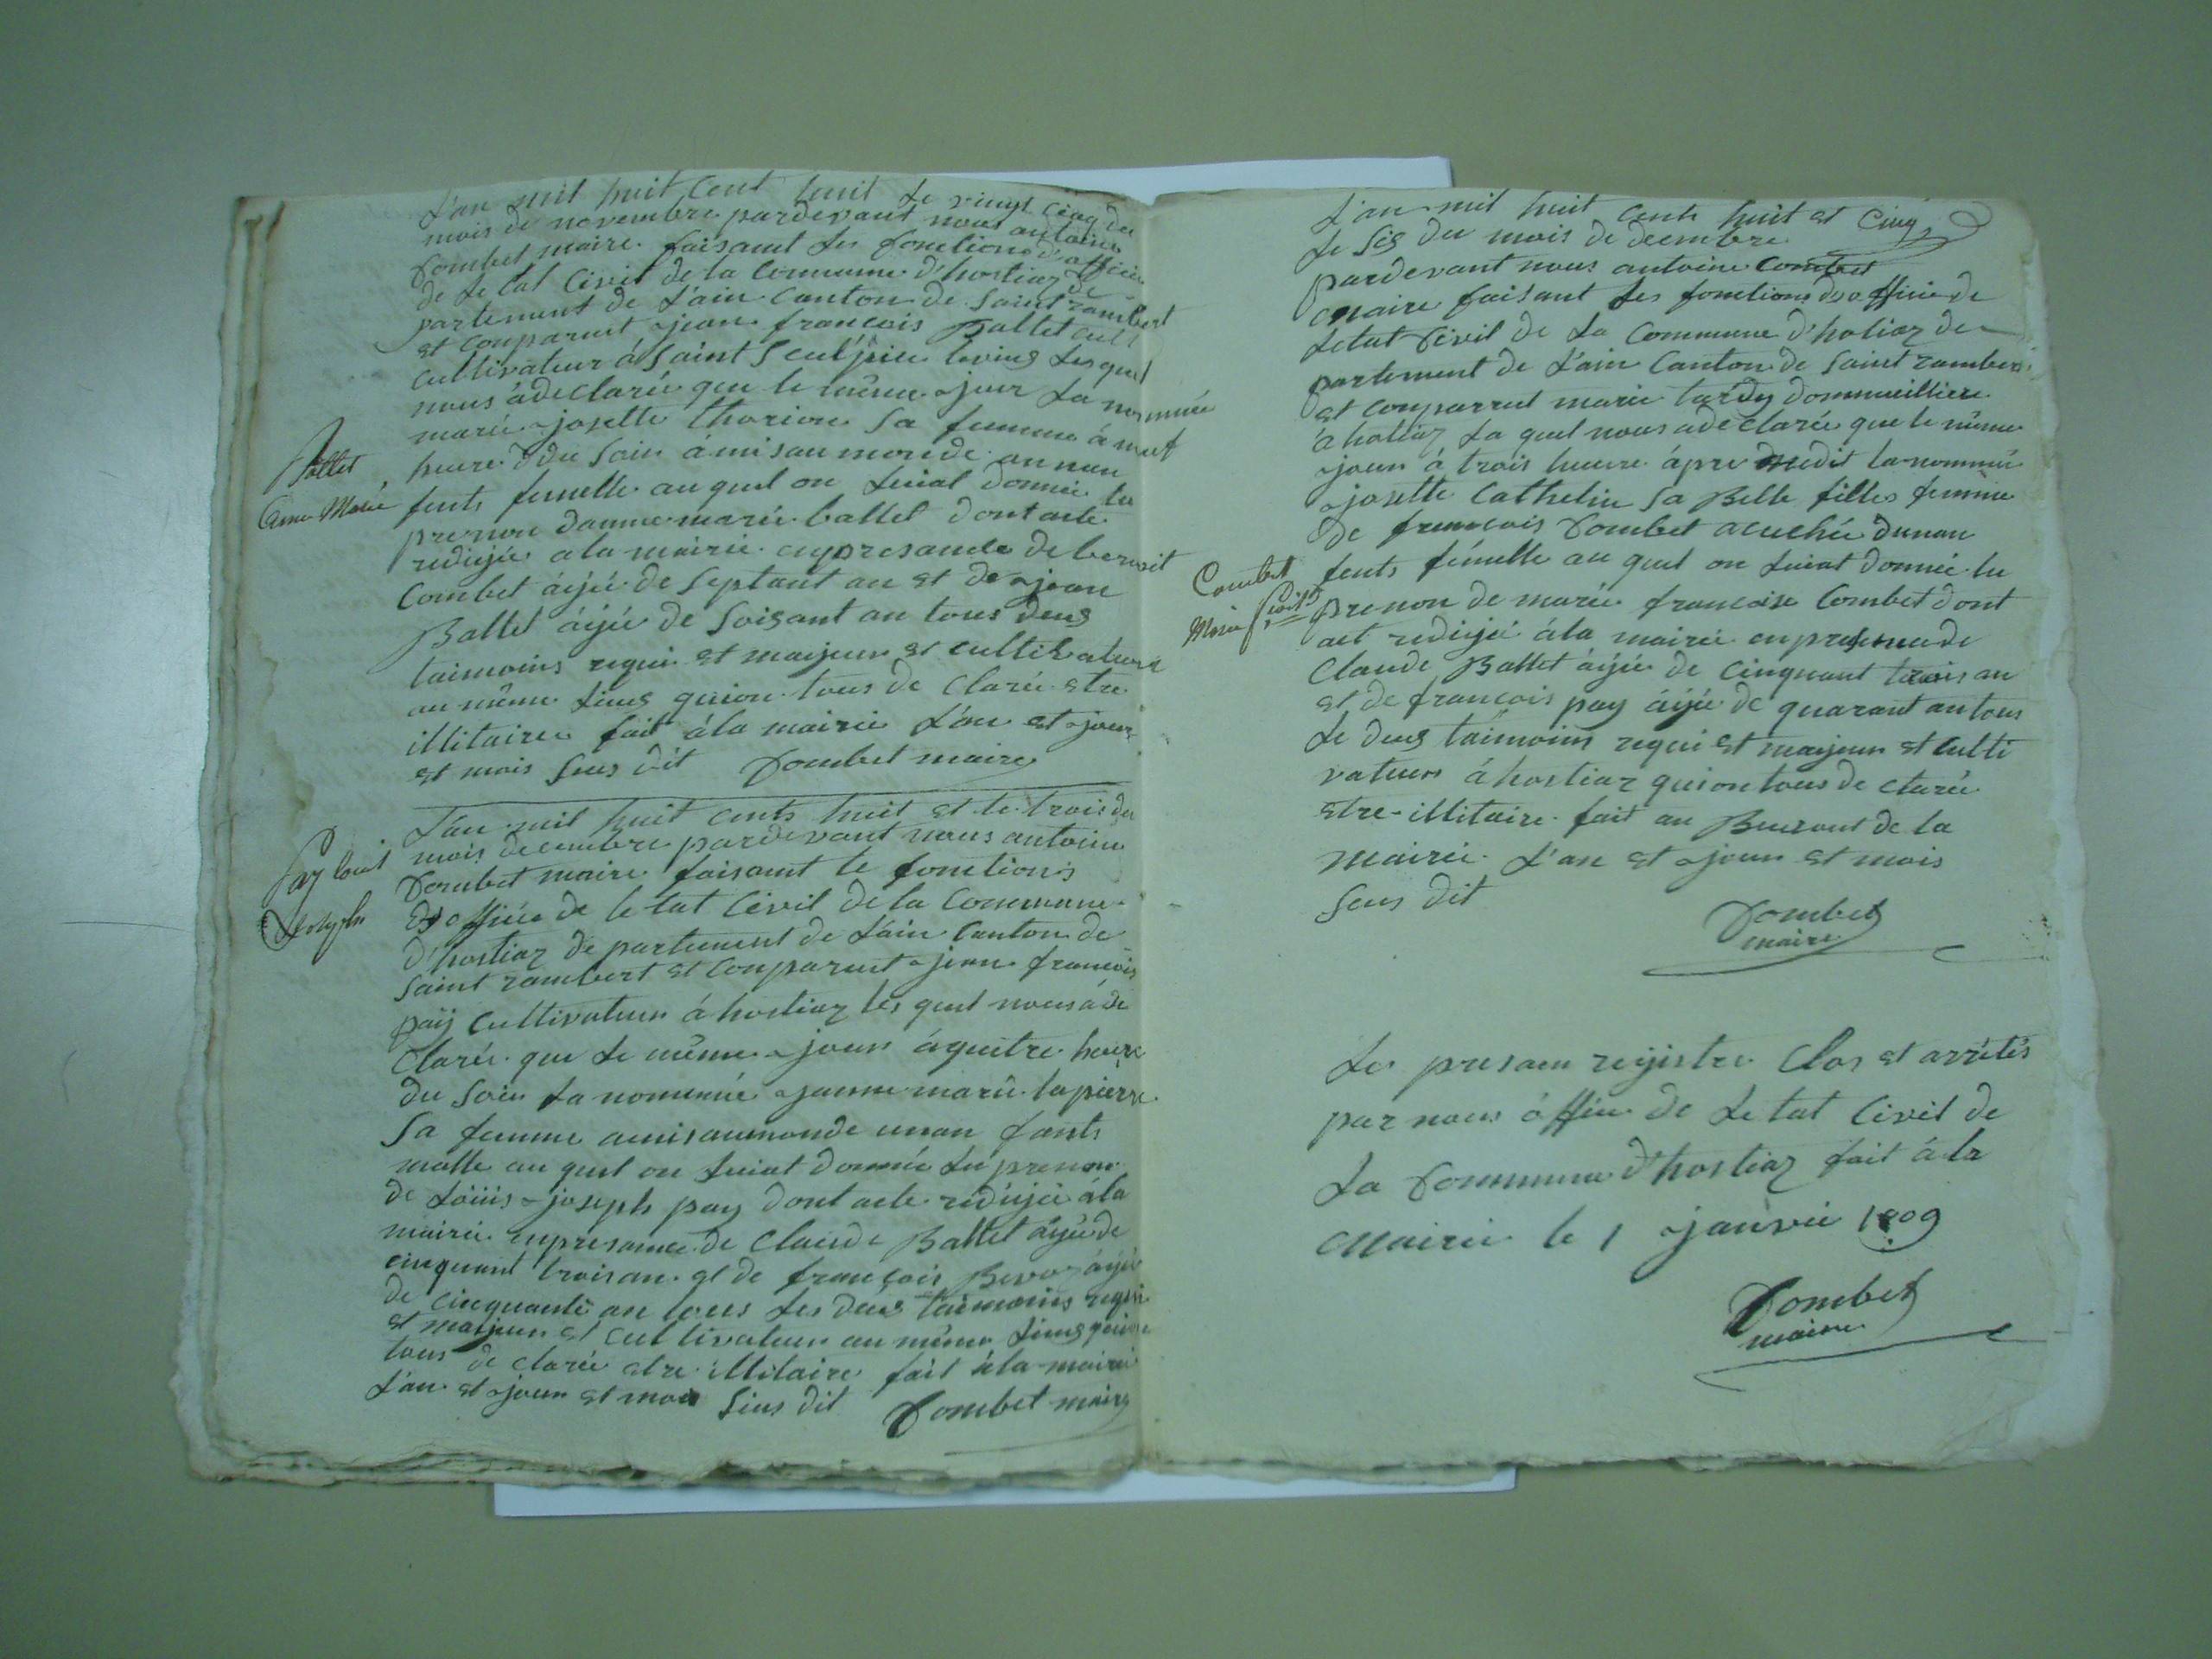 L'an mil huit cent huit le vingt cinq du
mois de novembre pardevant nous antoine
Combet maire faisant les fonctions d'officie
de le tat Civil de la Commune d'hostiaz de
partement de L'ain Canton de Saint rambert
et conparuit jean francois Ballet cult
cultivateur à Saint les quel
nous à de clarée que le même jour La nommée
marie josette thorion Sa femme à neuf
Ballet
heure du Soir à mis au monde un nan
Anne Marie
fents femelle au quel on donnée le
prenon danne marie ballet dont acte
redigée a la mairie en presance de benoit
Combet àijé de Septant an et de jean
Ballet àijé de Soisant an tous deus
taimoins requi et maijeur et cultivateure
au même lieus quion tous de clarée etre
illitaire fait à la mairie L'an et jour
et mois Sus dit Combet maire
L'an mil huit cents huit et le trois du
mois decembre pardevant nous antoine
pay louis
Combet maire faisant le fonctions
Joseph
d'officie de le tat Civil de la Commune
d'hostiaz de partement de L'ain Canton de
Saint rambert et conparuit jean francois
paÿ cultivateur à hostiaz les quel nous à de
clarée que le même jour à quatre heure
du Soir La nommée janne marie lapierre
Sa femme a mis au monde un an fants
malle au quel on donnée le prenon
de Loüis joseph pay dont acte redigée à la
mairie en presance de Claude Ballet àijé de
cinquant trois an et de francois àijé
de cinquante an tous les deus taimoins requi
et maijeur et cultivateur au même lieus quion
tous de clarée etre illitaire fait à la mairie
L'an et jour et mois Sus dit Combet maire
L'an mil huit cents huit et cinq
le Sis du mois de decembre
pardevant nous antoine Combet
maire faisant les fonctions d'officie de
letat Civil de La Commune d'hotiaz de
partement de L'ain Canton de Saint rambert
et conparrut marie tardy
à hotiaz La quel nous a de clarée que le même
jour à trois heure àpre medit la nommée
josette Cathelin Sa Belle filles femme
de francois Combet acuchée dunan
Combet
fents fémelle au quel on donnée le
Marie
prenon de marie francoise Combet dont
act redigé à la mairie en presence de
Claude Ballet àijé de cinquant trois an
et de francois pay àijé de quarant an tous
Le deus taimoins requi et maijeur et culti
vateur à hostiaz quion tous de clarée
etre illitaire fait au Bureaut de la
mairie L'an et jour et mois
Sus dit
Combet
maire
Le presam registre Clos et arrétés
par nous officie de Le tat Civil de
La Commune d'hostiaz fait à la
Mairie le 1 janvié 1809
Combet
maire